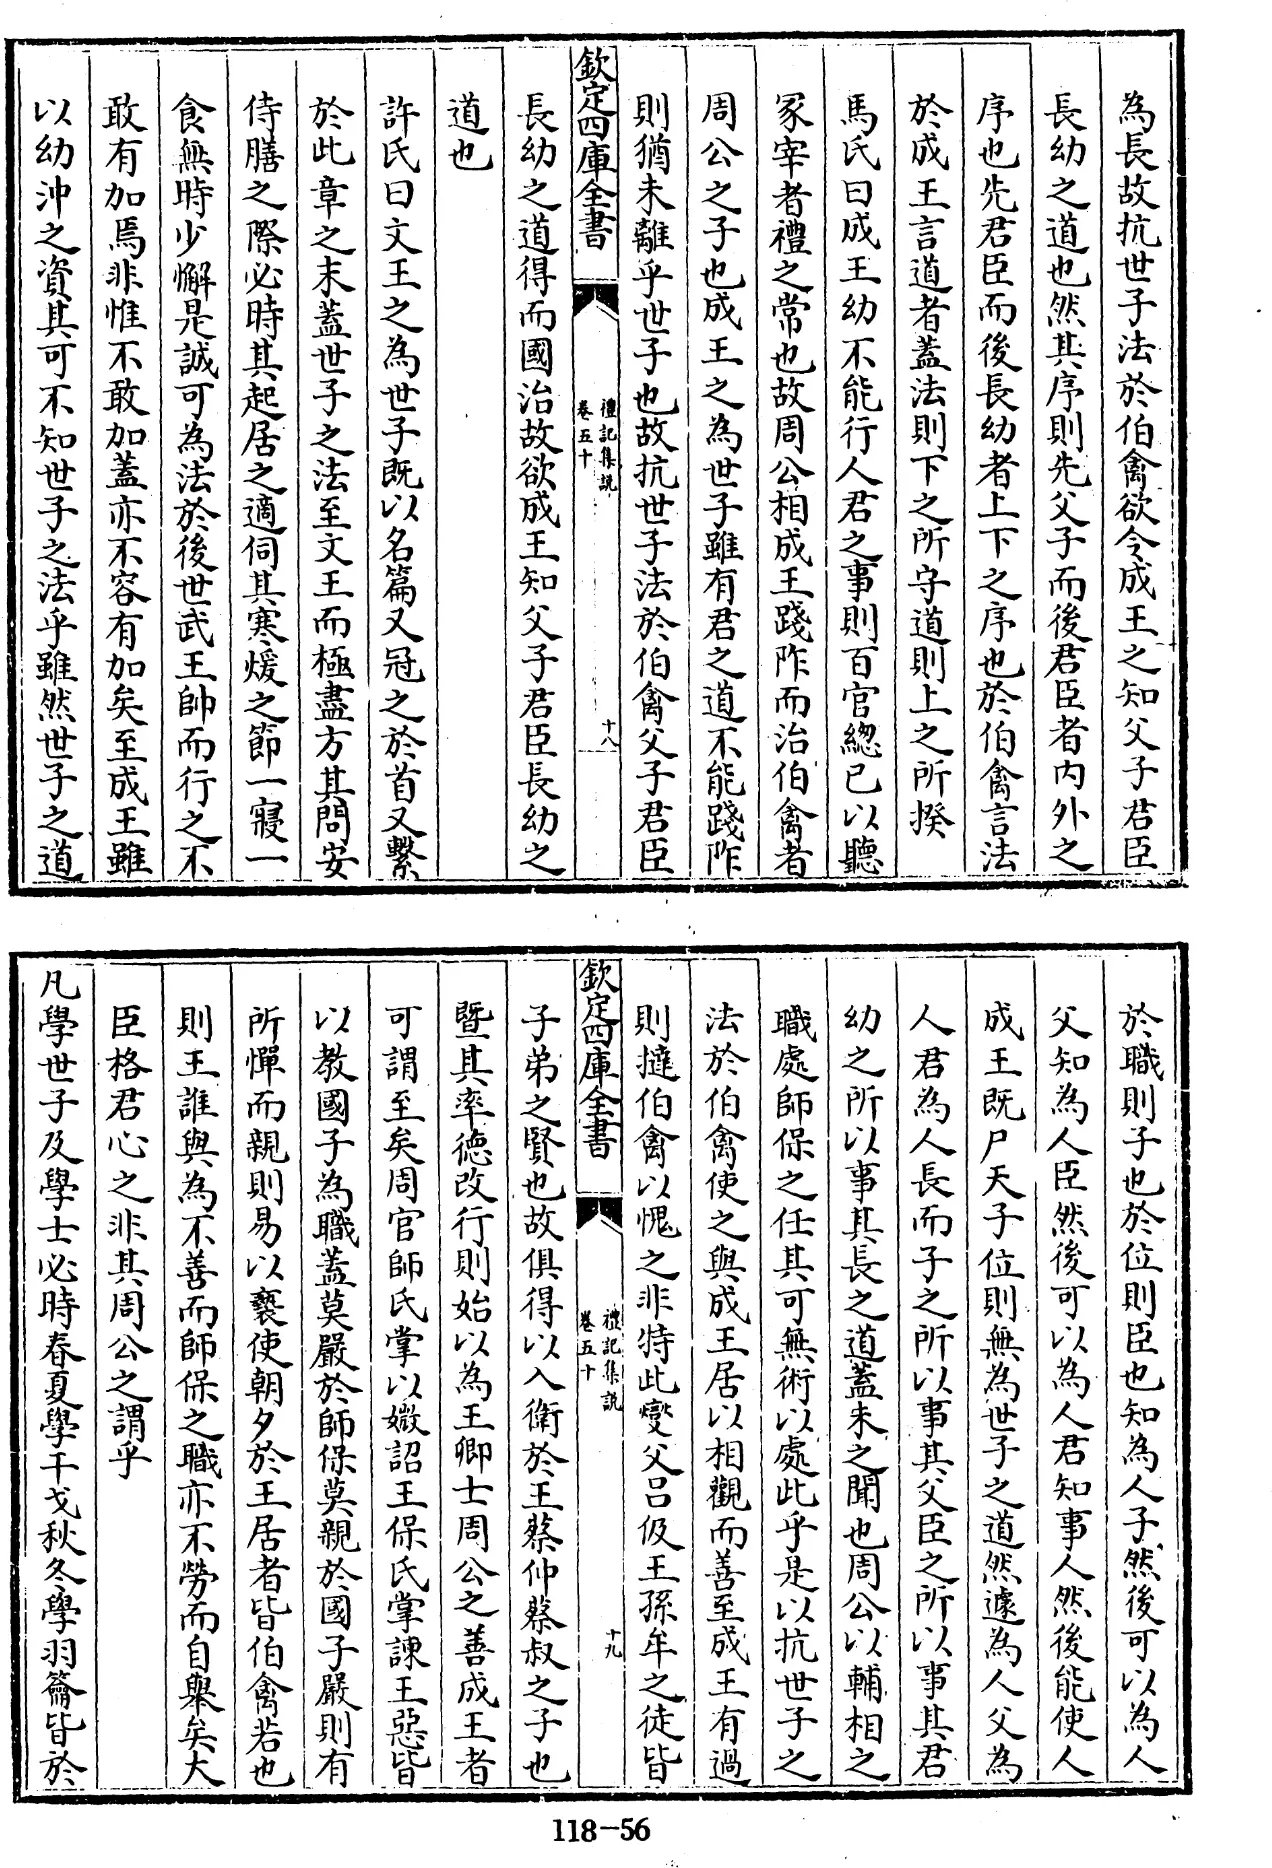 為長故抗世子法於伯禽欲令成王之知父子君臣
長幼之道也然其序則先父子而後君臣者内外之
序也先君臣而後長幼者上下之序也於伯禽言法
於成王言道者蓋法則下之所守道則上之所揆
馬氏曰成王幼不能行人君之事則百官總已以聽
冢宰者禮之常也故周公相成王踐阼而治伯禽者
周公之子也成王之為世子雖有君之道不能踐阼
則猶未離乎世子也故抗世子法於伯禽父子君臣
欽定四庫全書
禮記集説
卷五十
十八
長幼之道得而國治故欲成王知父子君臣長幼之
道也
許氏曰文王之為世子既以名篇又冠之於首又繫
於此章之末蓋世子之法至文王而極盡方其問安
侍膳之際必時其起居之適伺其寒煖之節一寢一
食無時少懈是誠可為法於後世武王帥而行之不
敢有加焉非惟不敢加蓋亦不容有加矣至成王雖
以幼沖之資其可不知世子之法乎雖然世子之道
於職則子也於位則臣也知為人子然後可以為人
父知為人臣然後可以為人君知事人然後能使人
成王既尸天子位則無為世子之道然遽為人父為
人君為人長而子之所以事其父臣之所以事其君
幼之所以事其長之道蓋未之聞也周公以輔相之
職處師保之任其可無術以處此乎是以抗世子之
法於伯禽使之與成王居以相觀而善至成王有過
則撻伯禽以愧之非特此燮父吕伋王孫牟之徒皆
欽定四庫全書
禮記集説
卷五十
十九
子弟之賢也故俱得以入衛於王蔡仲蔡叔之子也
暨其率德改行則始以為王卿士周公之善成王者
可謂至矣周官師氏掌以媺詔王保氏掌諫王惡皆
以教國子為職蓋莫嚴於師保莫親於國子嚴則有
所憚而親則易以褻使朝夕於王居者皆伯禽若也
則王誰與為不善而師保之職亦不勞而自舉矣大
臣格君心之非其周公之謂乎
凡學世子及學士必時春夏學干戈秋冬學羽籥皆於
118-56